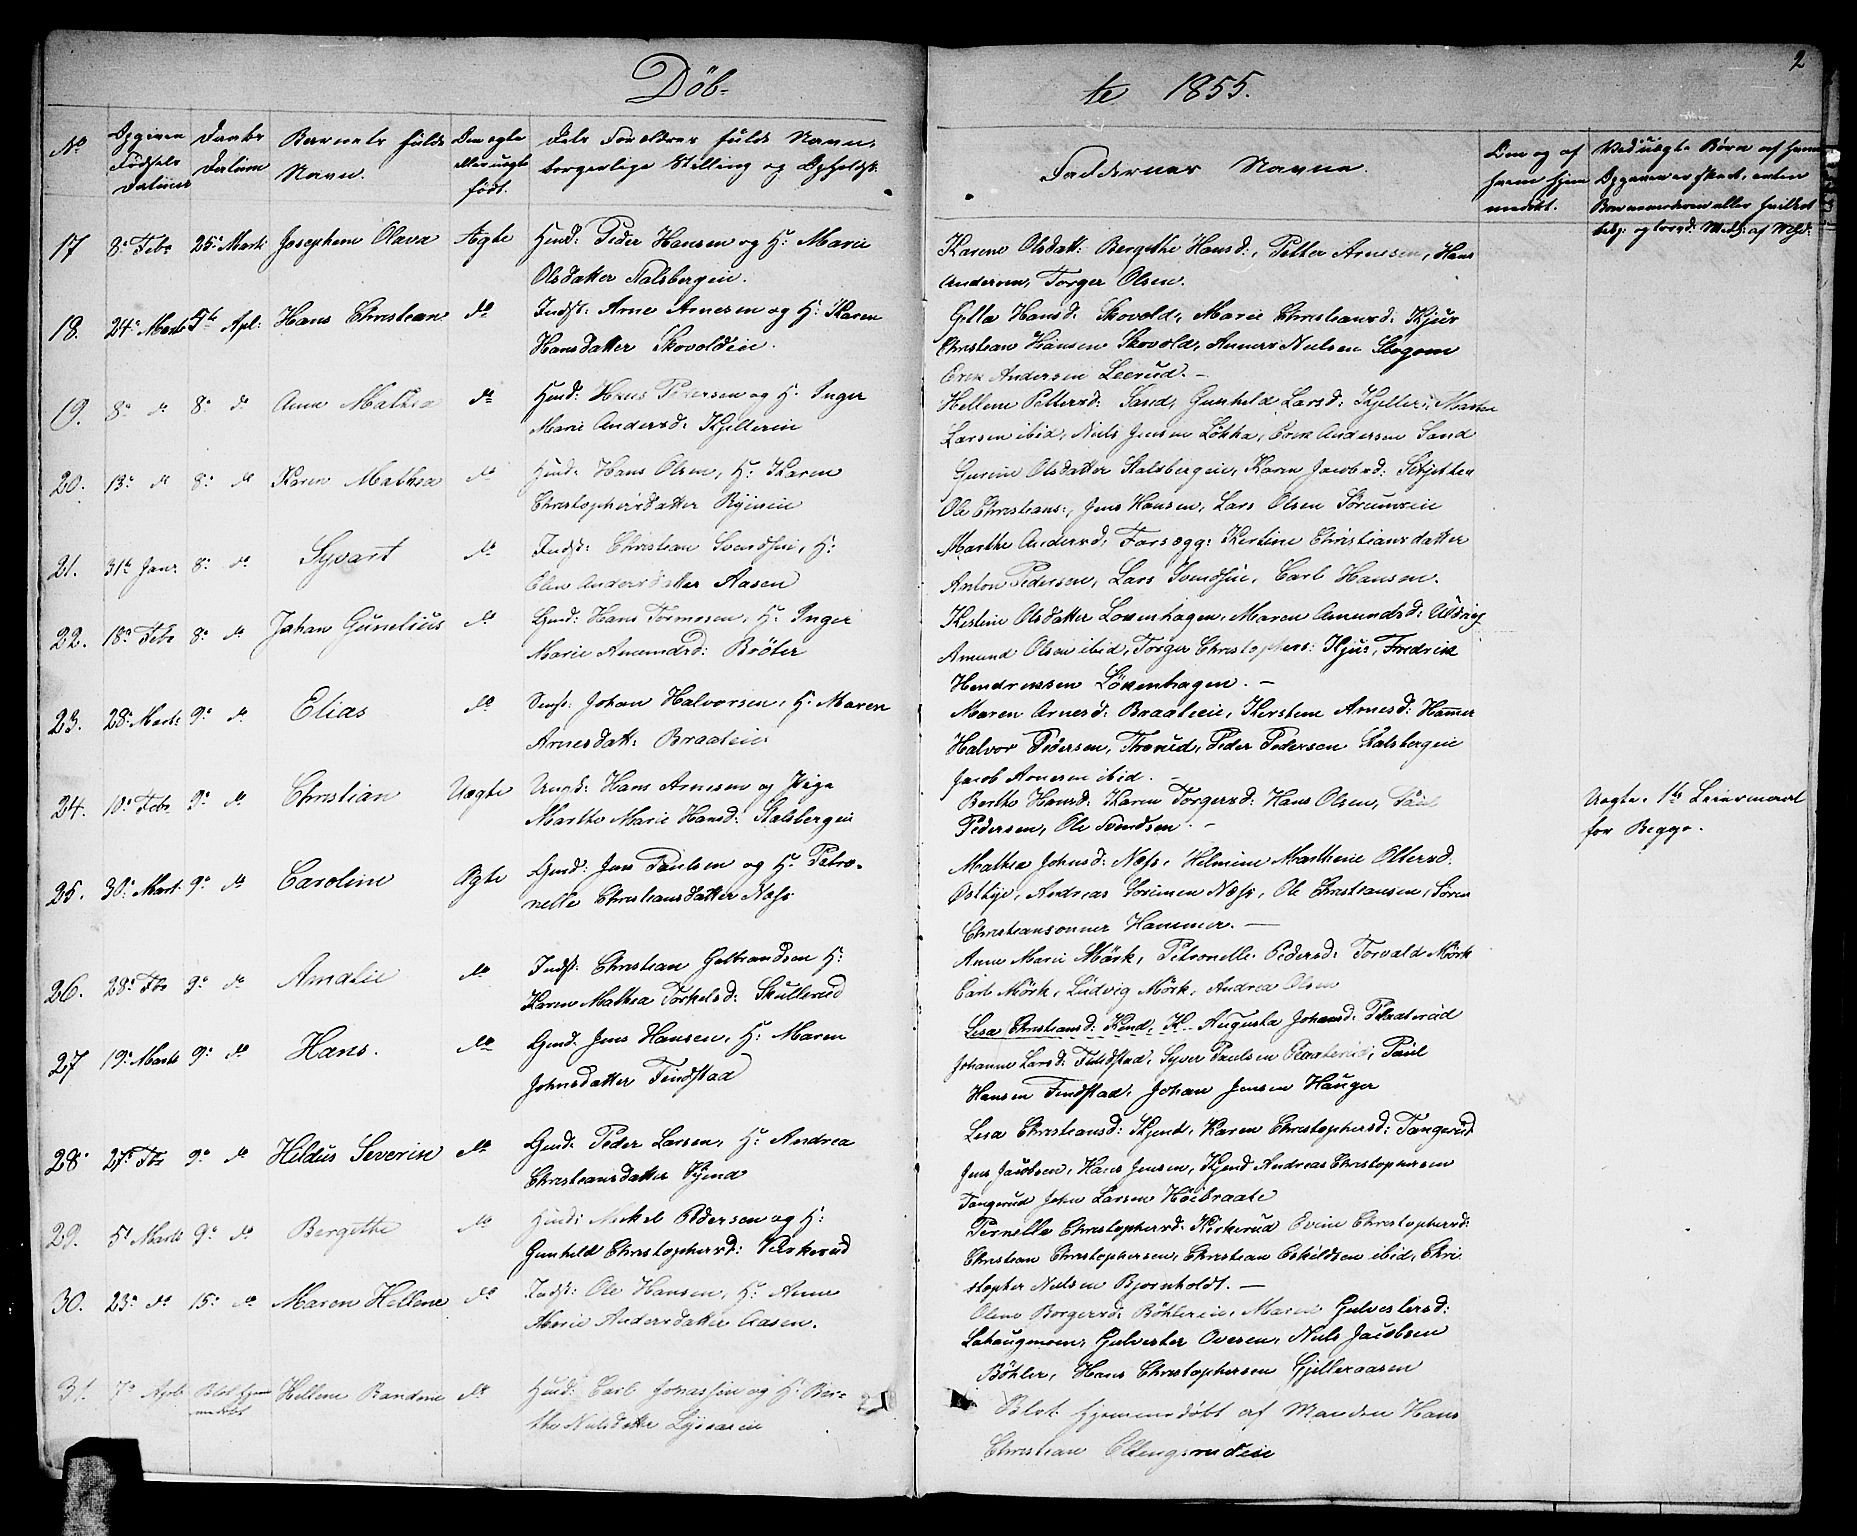 2
Döbte 1855.
No
Opgiven Fødsels Datum
Daabs Datum
Barnets fulde Navn.
Om ægte eller uægte født.
Dets Forældres fulde Navn, borgerlige Stilling og Opholdst.
Faddernes Navne.
Om og af hvem hjem medöbt.
Ved uægte Börn af hvem Opgaven er skeet, enten
17 8de Febr 25de Marts Josephine Olava Ægte Huusmd: Peder Hansen og H: Marie
Olsdatter Stalsbergeie.
Karene Olsdatt: Bergethe Hansd:, Petter Arnesen, Hans
Andersen, Torger Olsen.
18. 24de Marts 5te Apl: Hans Christian do Indst: Arne Arnesen og H: Karen
Hansdatter Skovoldeie.
Hansd: Skovold, Marie Christiansd: Kjus
Christian Hansen Skovold, Anners Nielsen
Erik Andersen Leerud. –
19. 8de do 8de do Anne Mathea do Huusmd: Hans Pedersen og H: Inger
Marie Andersd: Kjellereie
Hellene Pettersd: Sand, Gunhild Larsd: Kjeller, Marten
Larsen ibid, Niels Jensen Løkka, Erik Andersen Sand
20. 13de do 8de do Karen Mathea do Huusmd: Hans Olsen, H: Karen
Christophersdatter
Olsdatter Stalsbergeie, Karen Jacobsd:
Ole Christians:, Jens Hansen, Lars Olsen
21. 31te Janr 8de do Syvart do Indst: Christian Svendsen, H:
Elen Andersdatter Aasen
Marthe Andersd, Kirstine Christiansdatter
Anton Pedersen, Lars Svendsen, Carl Hansen.
22. 18de Febr 8de do Johan Gunelius do Gmd: Hans Tormosen, H: Inger
Marie Amundsd: Bröter
Kistine Olsdatter Lovenhagen, Maren Amundsd:
Amund Olsen ibid, Torger Christophers: Kjus, Fredrik
Hendriksen Lövenhagen. –
23. 28de Marts 9de do Elias do Johan Halvorsen, H: Maren
Arnesdatt: Braateie
Maren Arnesd: Braateie, Kirstine Arnesd: Hammer
Halvor Pedersen, Peder Pedersen Stalsbergeie
Jacob Arnesen ibid. –
24. 10de Febr 9de do Christian Uægte Ungk: Hans Arnesen og Pige
Marthe Marie Hansd: Stalsbergeie
Berthe Hansd: Karen Torgersd: Hans Olsen, Paul
Pedersen, Ole Svendsen. –
Uægte. 1ste Leiermaal
for Begge.
25. 30de Mart 9de do Caroline Ægte Gmd: Jens Paulsen og H: Petro-
nelle Christiansdatter Næss
Mathea Johnsd: Næss, Helmine Marthine Ottersd.
Ostbye, Andreas Næss, Ole Christiansen, Sören
Christiansonner Hammer. –
26. 28de Febr 9de do Amalie do Indst: Christian Gulbrandsen H:
Karen Mathea Torkelsd: Skullerud
Anne Marie Mörk, Petronelle Pedersd: Torvald Mörk
Carl Mörk, Ludvig Mörk, Andrea Olsen
27 19de Marts 9de do Hans. do Gmd. Jens Hansen, H: Maren
Johnsdatter Findstad
Lisa Christiansd: Kind, K. Augusta Johansd: Plaaterud
Johanne Larsd: Findstad, Syver Paulsen Plaaterud, Paul
Hansen Findstad, Johan Jensen Hauger
28. 27de Febr 9de do Hildus Severin do Gmd: Peder Larsen, H: Andrea
Christiansdatter Kjend
Lisa Christiansd: Kjend, Karen Christophersd: Tangerud
Jens Jacobsen, Hans Jensen, Kjend Andreas Christophersen
Tangerud John Larsen Höibraate
29. 5te Marts 9de do Bergitte do Huusmd: Mikel Pedersen og H:
Gunhild Christophersd: Kirkerud
Pernelle Christophersd: Kirkerud Evine Christophersd:
Christian Christophersen, Christian Eskildsen ibid, Chri
stopher Nielsen Bjornholdt. –
30. 23de do 15de do Maren Hellene do Indst: Ole Hansen, H: Anne
Marie Andersdatter Aasen.
Olene Borgersd: Böhlereie, Maren Gulvestersd:
Lahaugmoen, Gulvester Ovesen, Niels Jacobsen
Böhler, Hans Christophersen Gjelleraasen
31 7de April Blot hjemmedöbt Hellene Randine do Huusmd: Carl Jonassen og H: Ber-
the Nielsdatter
Blot hjemmedöbt af Manden Hans
Christian